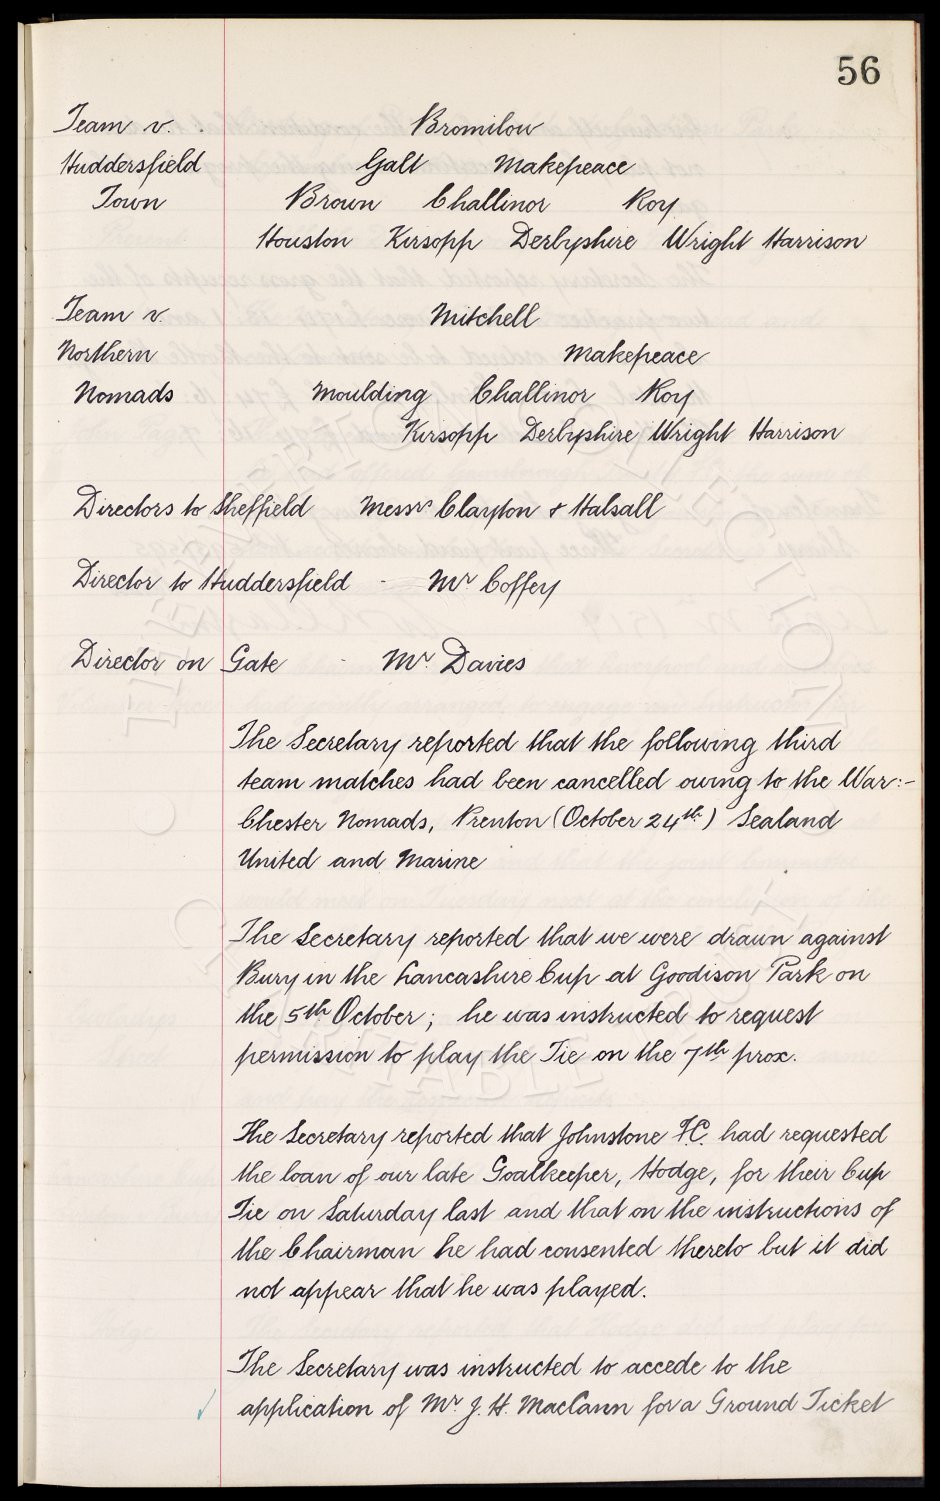 56
Team v. Bromilow
Huddersfield Galt Makepeace
Town Brown Challinor Roy
Houston Kirsopp Derbyshire Wright Harrison
Team v. Mitchell
Northern Makepeace
Nomads Moulding Challinor Roy
Kirsopp Derbyshire Wright Harrison
Directors to Sheffield Messrs Clayton & Halsall
Director to Huddersfield - Mr Coffey
Director on Gate - Mr. Davies
The Secretary reported that the following third
team matches had been cancelled owing to the War:-
Chester Nomads, Prenton (October 24th.) Sealand
United and Marine
The Secretary reported that we were drawn against
Bury in the Lancashire Cup at Goodison Park on
the 5th October; he was instructed to request
permission to play the Tie on the 7th prox.
The Secretary reported that Johnstone F.C. had requested
the loan of our late Goalkeeper, Hodge, for their Cup
Tie on Saturday last and that on the instructions of
the Chairman he had consented thereto but it did
not appear that he was played.
The Secretary was instructed to accede to the
application of Mr J. H. MacCann for a Ground Ticket